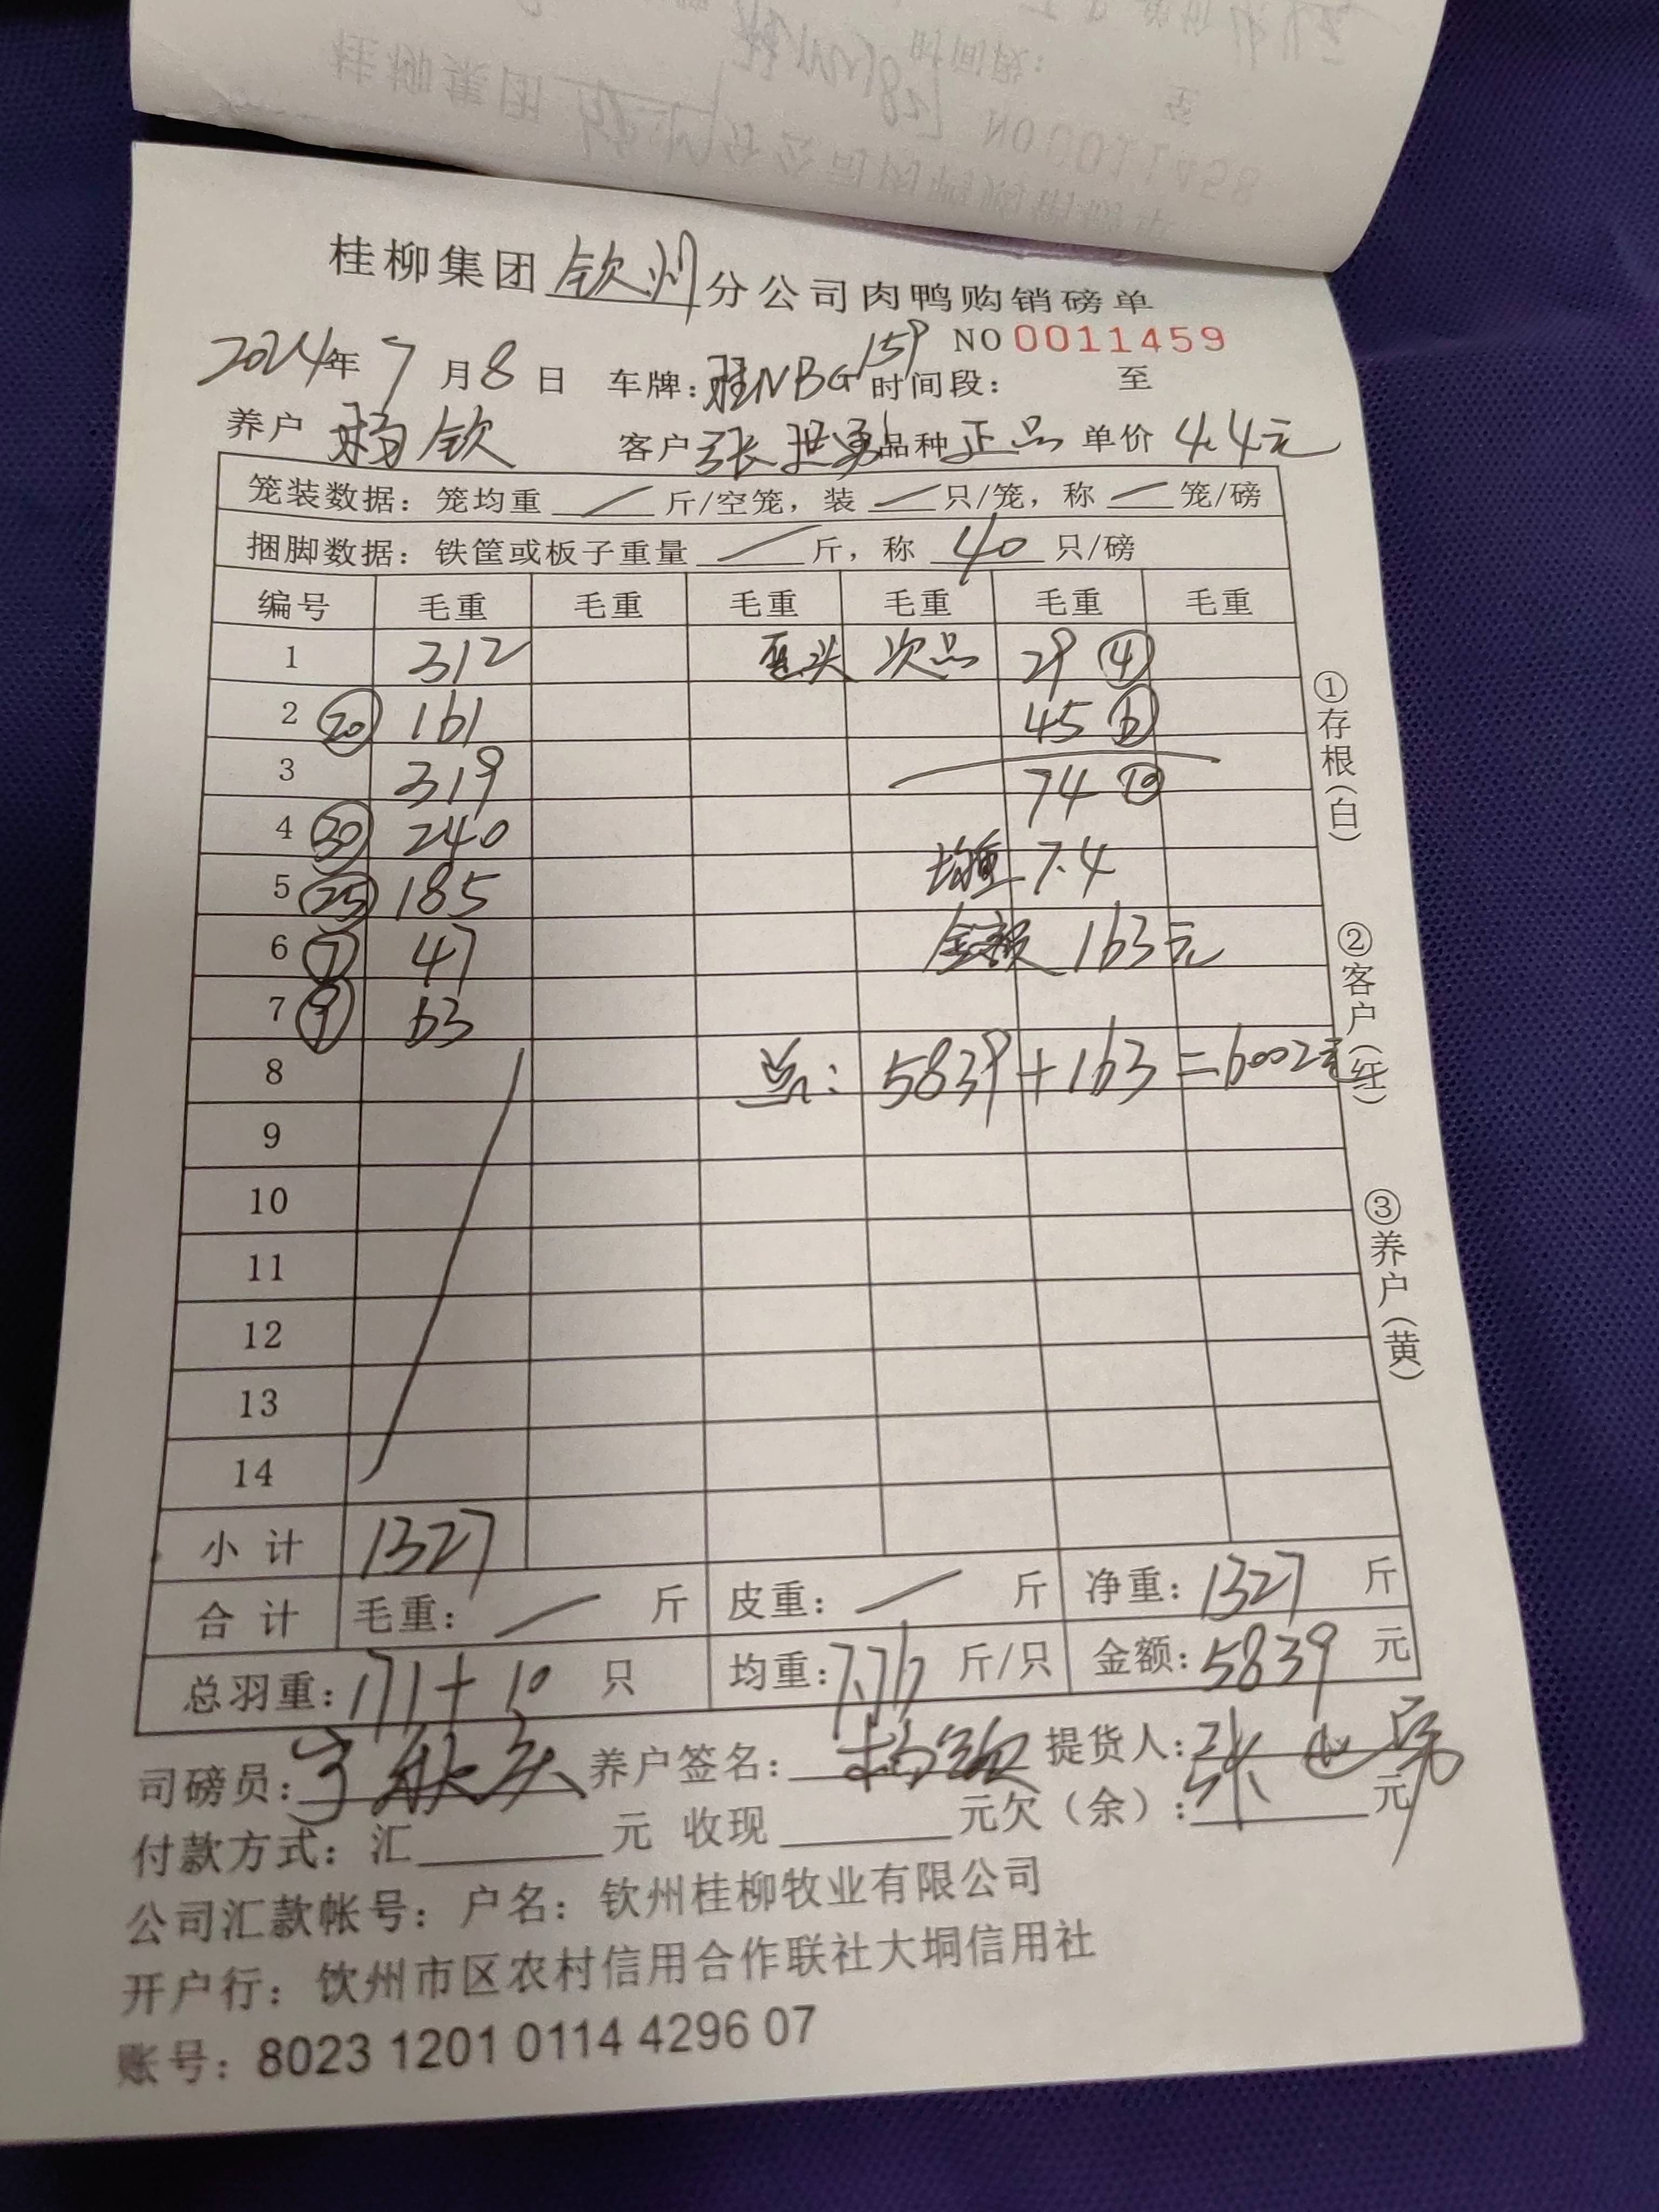 桂柳集团钦州分公司肉鸭购销磅单
NO 0011459
2024年7月8日 车牌:桂NBG159 时间段: 至
养户 杨钦 客户 张世勇 品种 正品 单价 4.4元
笼装数据:笼均重 / 斤/空笼,装 / 只/笼,称 / 笼/磅
捆脚数据:铁筐或板子重量 / 斤,称 40 只/磅
编号 毛重 毛重 毛重 毛重 毛重 毛重
1 312 歪头 次品 29 ④
2 ⑳ 161 45 ⑥
3 319 74 ⑩
4 ㉚ 240 均重 7.4
5 ㉕ 185
6 ⑦ 47 金额 163元
7 ⑨ 63
8 总: 5839+163=6002元
9
10
11
12
13
14
小计 1327
合计 毛重: / 斤 皮重: / 斤 净重:1327 斤
总羽重:171+10 只 均重:7.76 斤/只 金额:5839 元
司磅员: 养户签名:杨钦 提货人:张世勇
付款方式:汇 元 收现 元欠(余): 元
公司汇款帐号:户名:钦州桂柳牧业有限公司
开户行:钦州市区农村信用合作联社大垌信用社
账号:8023 1201 0114 4296 07
①存根(白)
②客户(红)
③养户(黄)